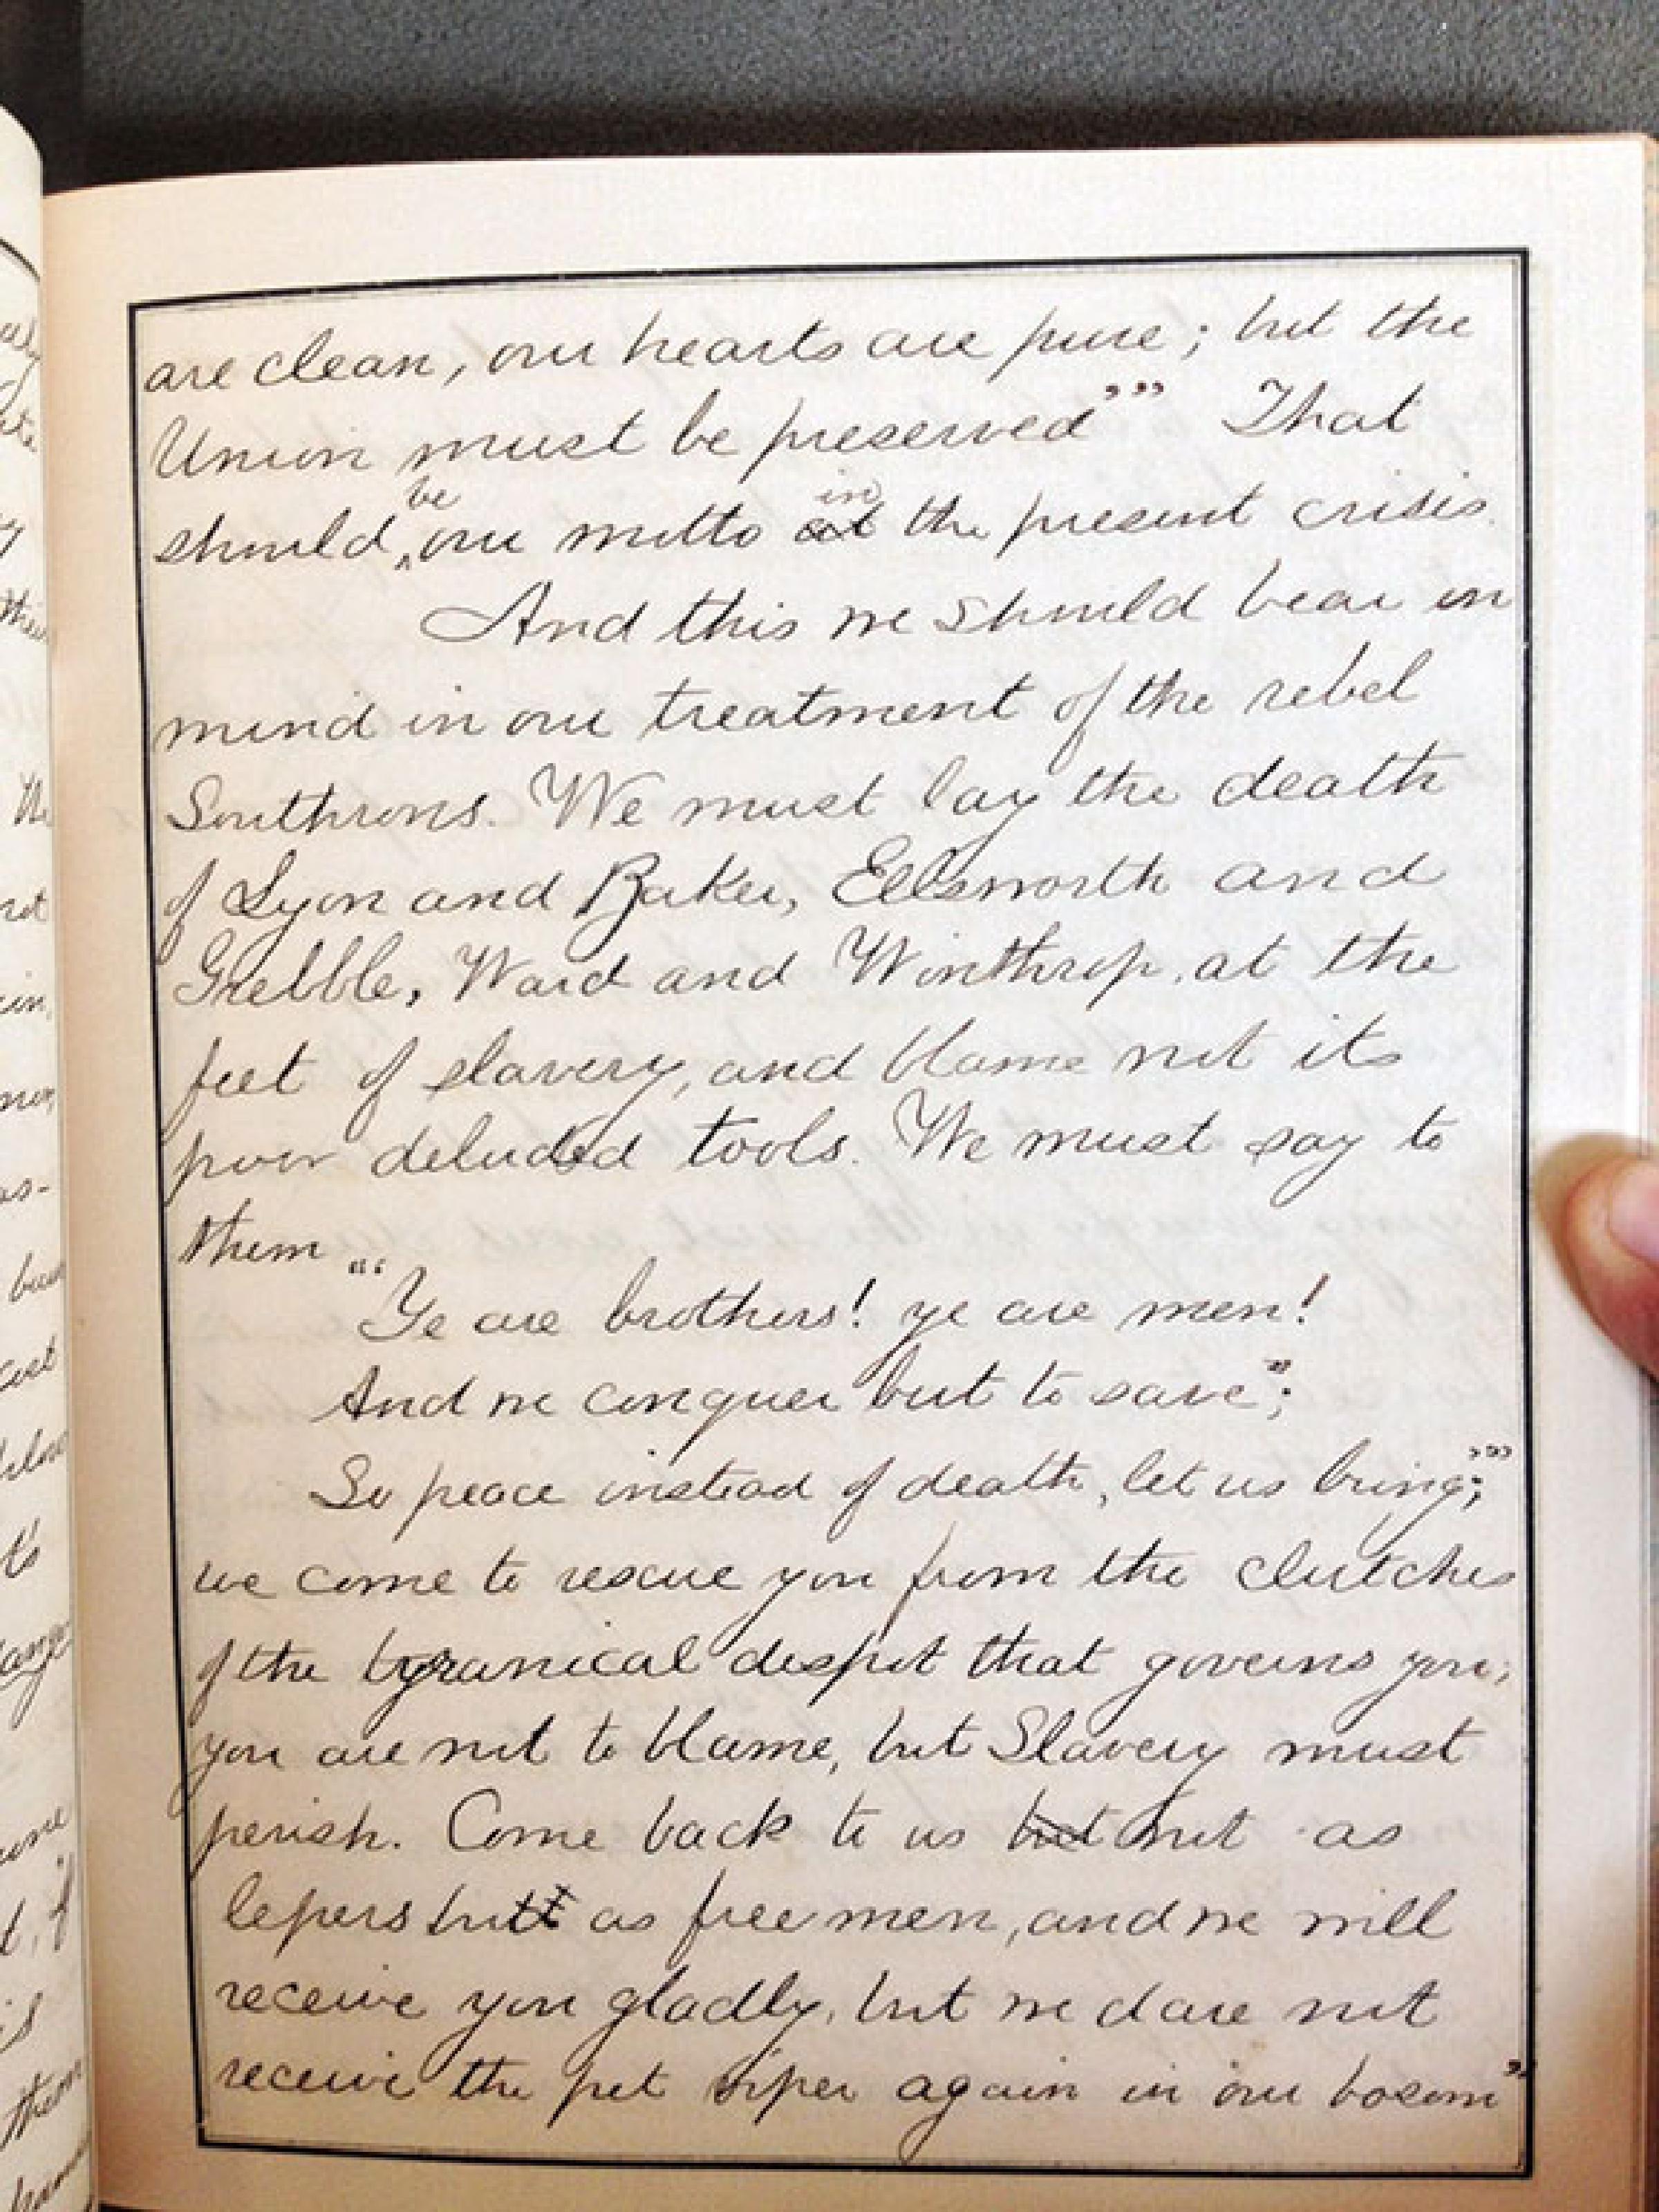 are clean, our hearts are pure; but the
Union must be preserved"'" That
should be our motto at in the present crisis.
And this we should bear in
mind in our treatment of the rebel
Southrons. We must lay the death
of Lyon and Baker, Ellsworth and
Grebble, Ward and Winthrop, at the
feet of slavery, and blame not its
poor deluded tools. We must say to
them
"'"Ye are brothers! ye are men!
And we conquer but to save";
So peace instead of death, let us bring;'"
we come to rescue you from the clutches
of the tyranical despot that governs you;
you are not to blame, but Slavery must
perish. Come back to us but not as
lepers but as free men, and we will
receive you gladly, but we dare not
receive the pet viper again in our bosom"
the
not
in,
as-
them